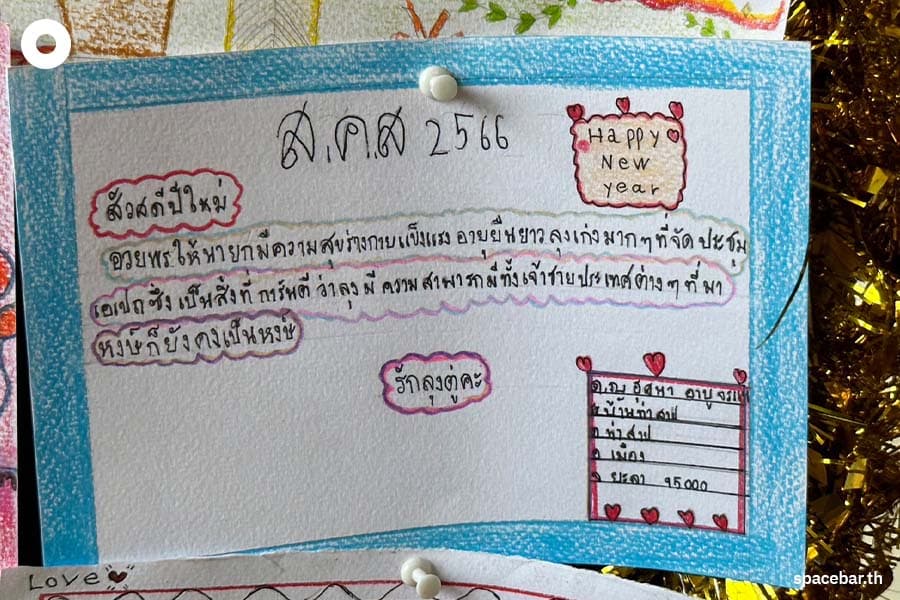 ส.ค.ส 2566
Happy
New
year
สวัสดีปีใหม่
อวยพรให้นายกมีความสุขร่างกายแข็งแรง อายุยืนยาว ลุงเก่งมากๆที่จัดประชุม
เอเปกซึ่งเป็นสิ่งที่การันตีว่าลุงมีความสามารถมีทั้งเจ้าชายประเทศต่างๆที่มา
หงษ์ก็ยังคงเป็นหงษ์
รักลุงตู่คะ
ด.ญ
บ้านท่าสาป
ต ท่าสาป
อ เมือง
จ ยะลา 95000
Love
spacebar.th